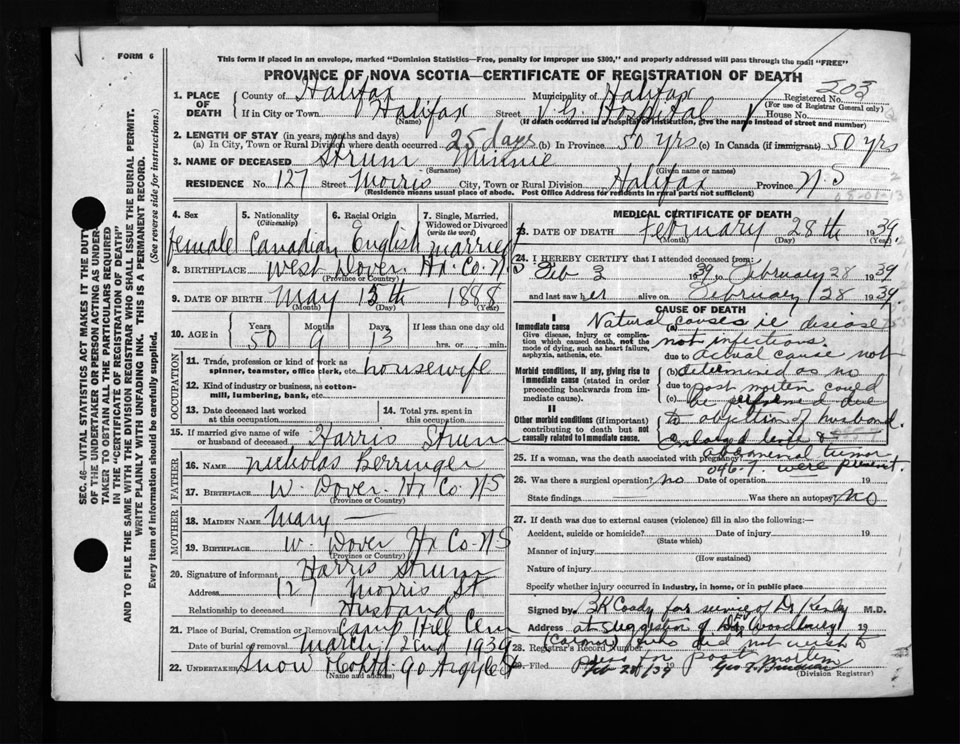 FORM 6
This form if placed in an envelope, marked "Dominion Statistics—Free, penalty for improper use $300," and properly addressed will pass through the mail "FREE"
PROVINCE OF NOVA SCOTIA—CERTIFICATE OF REGISTRATION OF DEATH
203
1. PLACE OF DEATH County of Halifax Municipality of Halifax Registered No.
(For use of Registrar General only)
If in City or Town Halifax Street V.G. Hospital House No.
(Name) (If death occurred in a hospital or institution, give the name instead of street and number)
2. LENGTH OF STAY (in years, months and days)
(a) In City, Town or Rural Division where death occurred 25 days (b) In Province 50 yrs (c) In Canada (if immigrant) 50 yrs
3. NAME OF DECEASED Strum Minnie
(Surname) (Given name or names)
RESIDENCE No. 127 Street Morris City, Town or Rural Division Halifax Province N.S
(Residence means usual place of abode. Post Office Address for residents in rural parts not sufficient)
4. Sex female
5. Nationality (Citizenship) Canadian
6. Racial Origin English
7. Single, Married, Widowed or Divorced (write the word) married
8. BIRTHPLACE West Dover Hx. Co. N.S
(Province or Country)
9. DATE OF BIRTH May 15th 1888
(Month) (Day) (Year)
10. AGE in Years Months Days If less than one day old
50 9 13 hrs. or min.
OCCUPATION
11. Trade, profession or kind of work as spinner, teamster, office clerk, etc. housewife
12. Kind of industry or business, as cotton-mill, lumbering, bank, etc.
13. Date deceased last worked at this occupation
14. Total yrs. spent in this occupation
15. If married give name of wife or husband of deceased Harris Strum
FATHER
16. Name Nicholas Berringer
17. Birthplace W. Dover. Hx Co. N S
(Province or Country)
MOTHER
18. Maiden Name Mary —
19. Birthplace W. Dover Hx Co. N S
(Province or Country)
20. Signature of informant Harris Strum
Address 127 Morris St
Relationship to deceased Husband
21. Place of Burial, Cremation or Removal Camp Hill Cem
Date of burial or removal March 2nd 1939
22. Undertaker Snow 90 Argyle St
(Name and address)
MEDICAL CERTIFICATE OF DEATH
23. DATE OF DEATH February 28th 1939
(Month) (Day) (Year)
24. I HEREBY CERTIFY that I attended deceased from:
Feb 3 1939 to February 28 1939
and last saw her alive on February 28 1939.
CAUSE OF DEATH
I
Immediate cause
Give disease, injury or complication which caused death, not the mode of dying, such as heart failure, asphyxia, asthenia, etc.
Morbid conditions, if any, giving rise to immediate cause (stated in order proceeding backwards from immediate cause).
II
Other morbid conditions (if important) contributing to death but not causally related to immediate cause.
(a) Natural causes ie disease
not infectious.
due to actual cause not
(b) determined as no
due to post mortem could
(c) be performed due
to objection of husband.
Enlarged &
abdominal tumor
were present.
25. If a woman, was the death associated with pregnancy? 046-7
26. Was there a surgical operation? no Date of operation 19
State findings — Was there an autopsy? no
27. If death was due to external causes (violence) fill in also the following:—
Accident, suicide or homicide? Date of injury 19
(State which)
Manner of injury
(How sustained)
Nature of injury
Specify whether injury occurred in industry, in home, or in public place
Signed by K Coady for service of Dr Kenley M.D.
Address at suggestion of Dr Woodbury 19
(coroner) who did not wish to
28. Registrar's Record Number
press for post mortem
29. Filed Feb 28/39 19 Geo
(Division Registrar)
SEC. 46—VITAL STATISTICS ACT MAKES IT THE DUTY OF THE UNDERTAKER OR PERSON ACTING AS UNDERTAKER TO OBTAIN ALL THE PARTICULARS REQUIRED IN THE "CERTIFICATE OF REGISTRATION OF DEATH"
AND TO FILE THE SAME WITH THE DIVISION REGISTRAR WHO SHALL ISSUE THE BURIAL PERMIT.
WRITE PLAINLY WITH UNFADING INK. THIS IS A PERMANENT RECORD.
Every item of information should be carefully supplied. (See reverse side for instructions.)